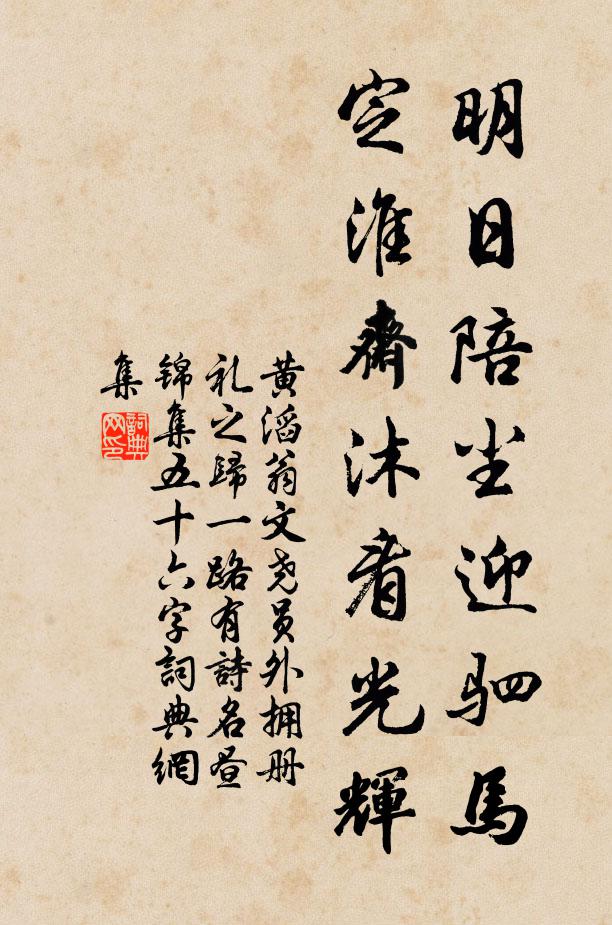 明日陪尘迎驷馬
定淮齋沐看光輝
黄滔翁文尧員外拥册
礼之歸一路有詩名昼
锦集五十六字詞典網
集
詞典网印